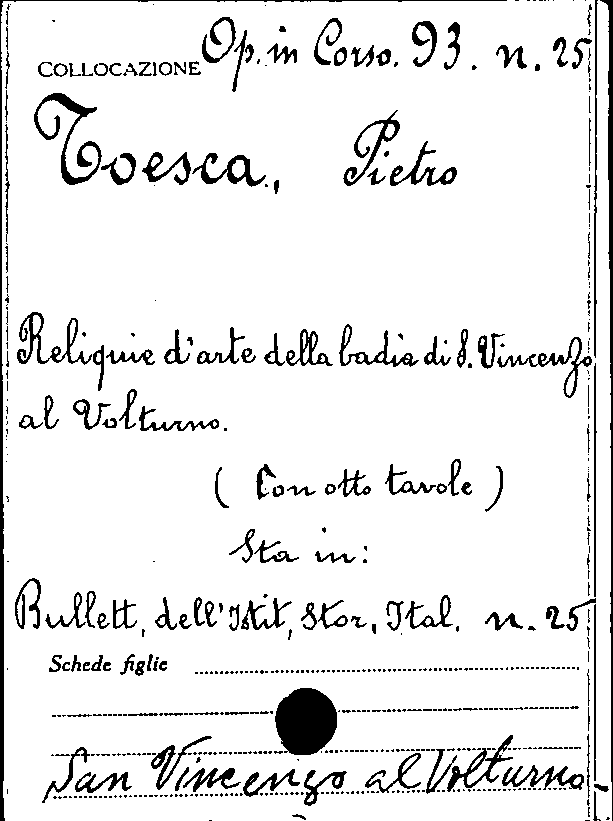 COLLOCAZIONE Op. in Corso. 93. n. 25
Toesca, Pietro
Reliquie d'arte della badia di S. Vincenzo
al Volturno.
( Con otto tavole )
Sta in:
Bullett, dell'Istit, Stor, Ital. n. 25
Schede figlie
San Vincenzo al Volturno